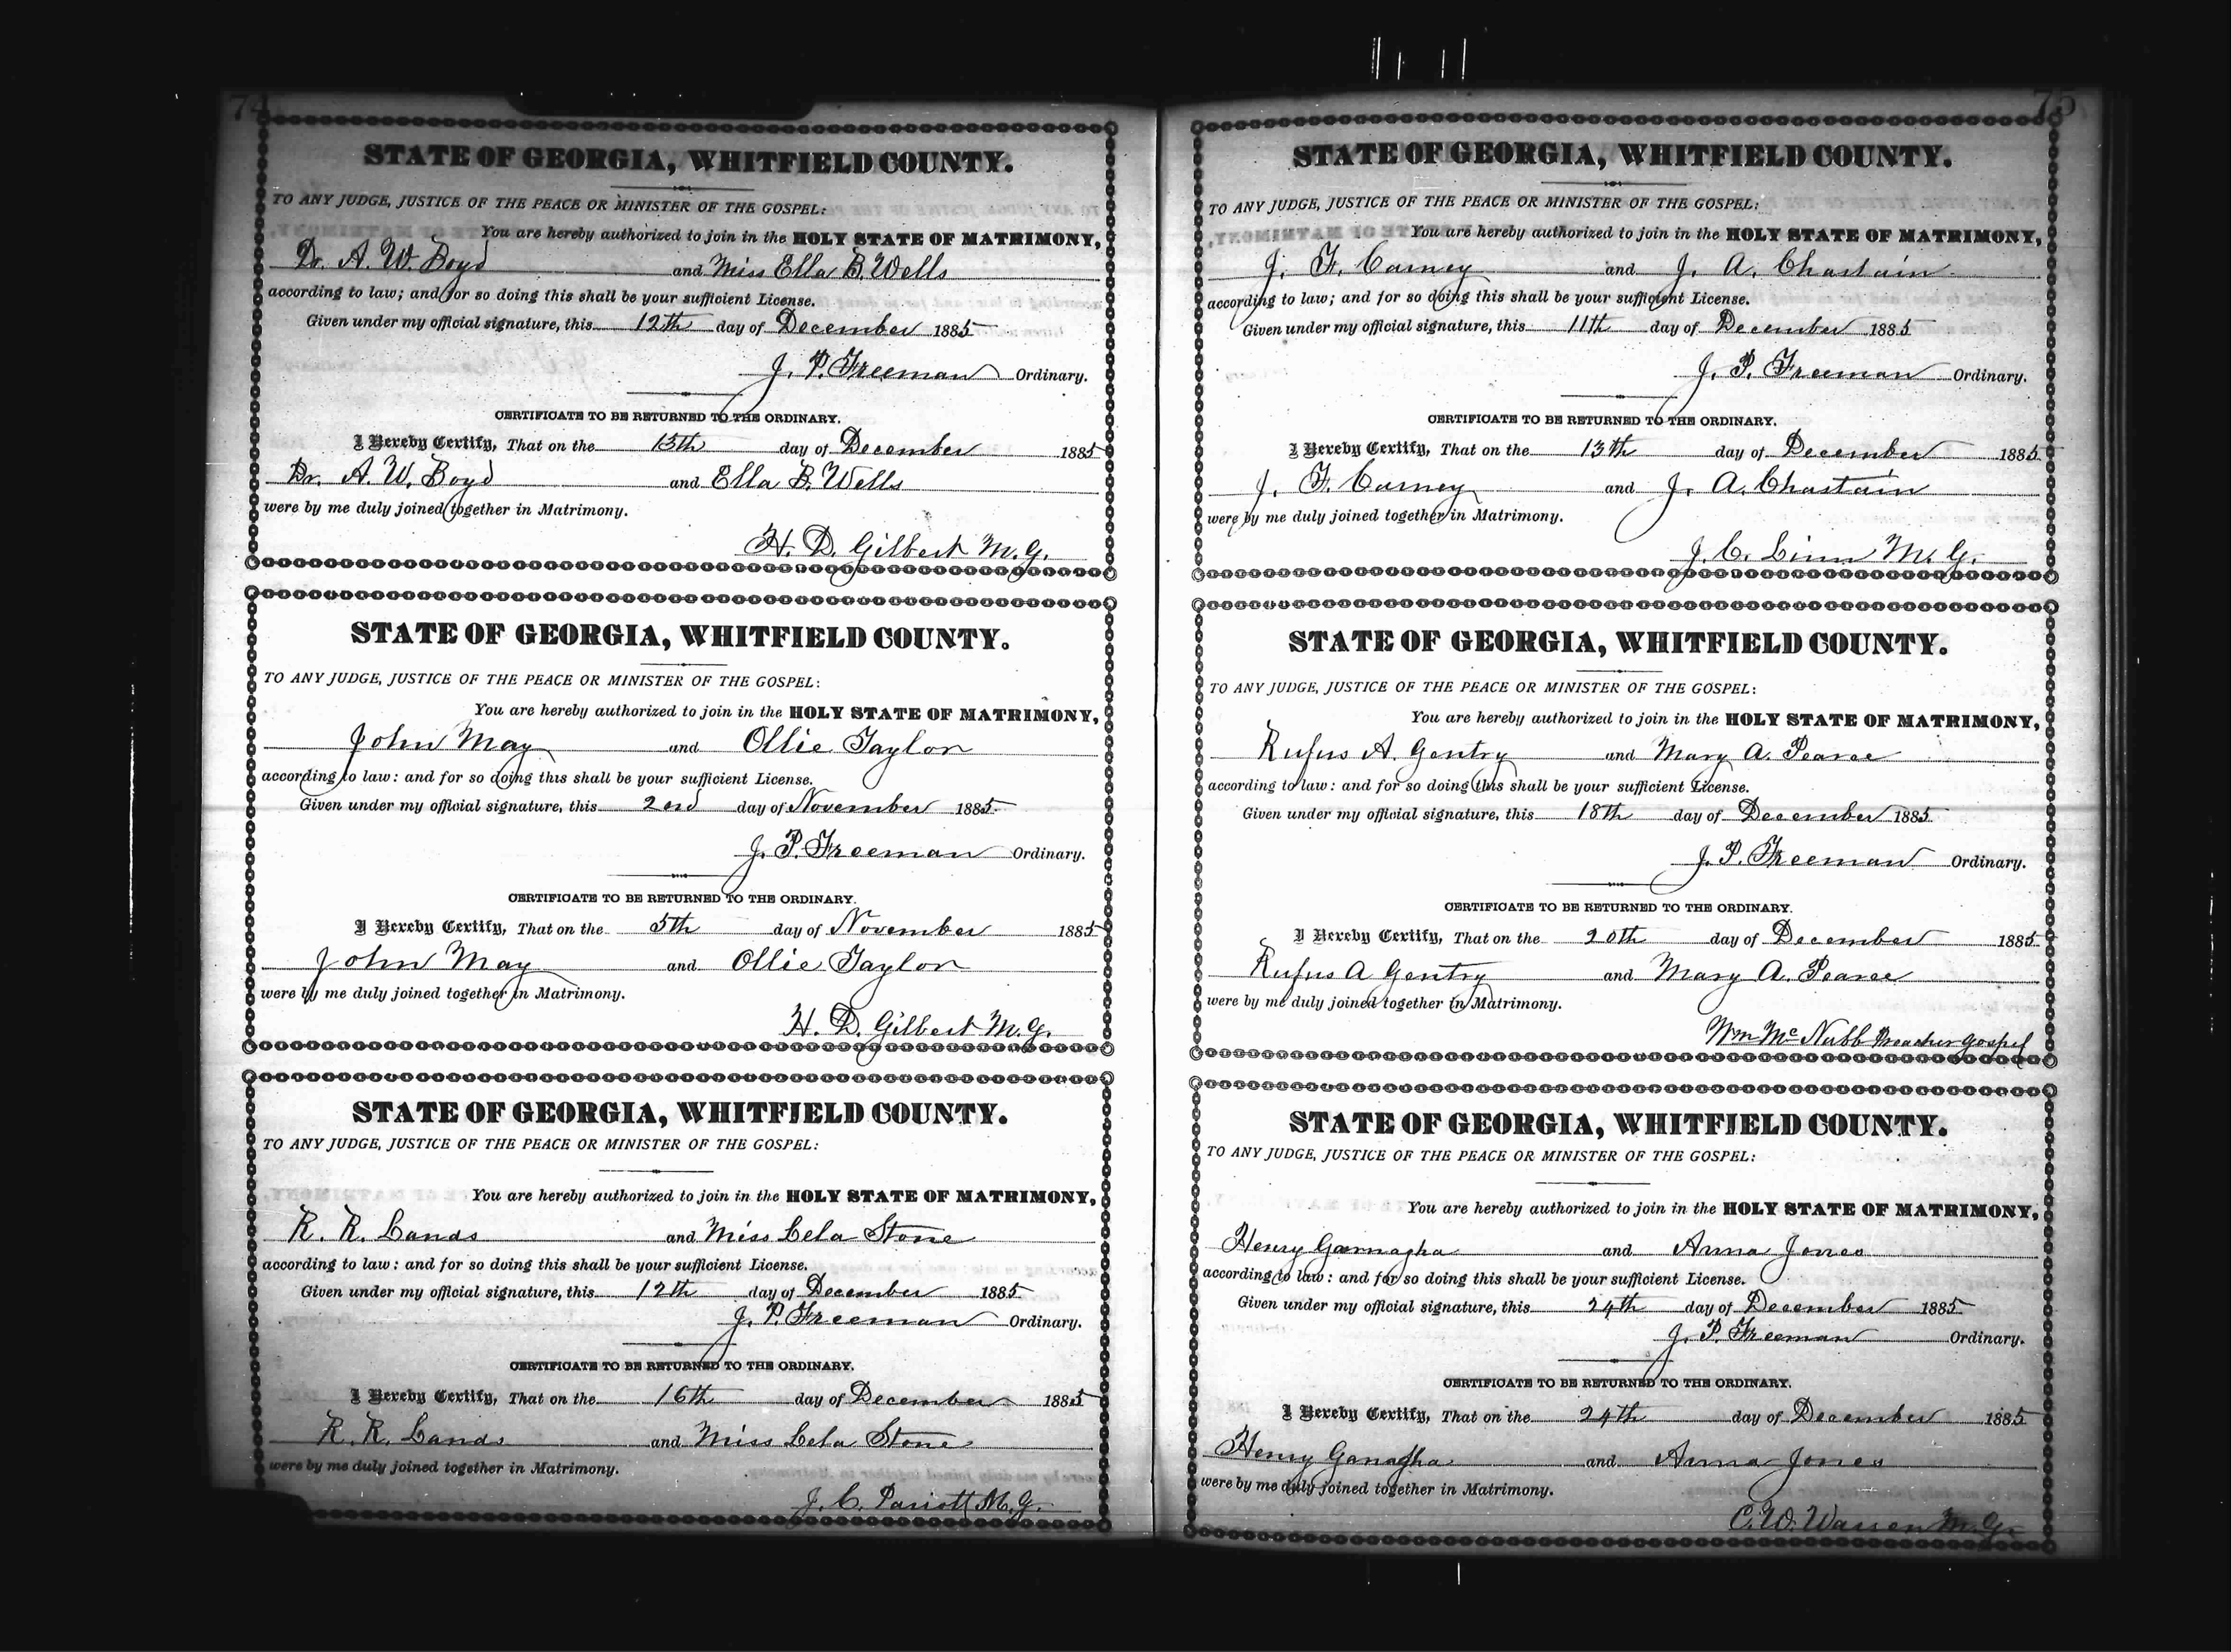 74
STATE OF GEORGIA, WHITFIELD COUNTY.
TO ANY JUDGE, JUSTICE OF THE PEACE OR MINISTER OF THE GOSPEL:
You are hereby authorized to join in the HOLY STATE OF MATRIMONY,
Dr. A. W. Boyd and Miss Ella B. Wells
according to law; and for so doing this shall be your sufficient License.
Given under my official signature, this 12th day of December 1885
J. P. Freeman Ordinary.
CERTIFICATE TO BE RETURNED TO THE ORDINARY.
I Hereby Certify, That on the 13th day of December 1885
Dr. A. W. Boyd and Ella B. Wells
were by me duly joined together in Matrimony.
H. D. Gilbert M.G.
STATE OF GEORGIA, WHITFIELD COUNTY.
TO ANY JUDGE, JUSTICE OF THE PEACE OR MINISTER OF THE GOSPEL:
You are hereby authorized to join in the HOLY STATE OF MATRIMONY,
John May and Ollie Taylor
according to law: and for so doing this shall be your sufficient License.
Given under my official signature, this 2nd day of November 1885
J. P. Freeman Ordinary.
CERTIFICATE TO BE RETURNED TO THE ORDINARY.
I Hereby Certify, That on the 5th day of November 1885
John May and Ollie Taylor
were by me duly joined together in Matrimony.
H. D. Gilbert M.G.
STATE OF GEORGIA, WHITFIELD COUNTY.
TO ANY JUDGE, JUSTICE OF THE PEACE OR MINISTER OF THE GOSPEL:
You are hereby authorized to join in the HOLY STATE OF MATRIMONY,
R. R. Lands and Miss Lela Stone
according to law: and for so doing this shall be your sufficient License.
Given under my official signature, this 12th day of December 1885
J. P. Freeman Ordinary.
CERTIFICATE TO BE RETURNED TO THE ORDINARY.
I Hereby Certify, That on the 16th day of December 1885
R. R. Lands and Miss Lela Stone
were by me duly joined together in Matrimony.
J. C. Parrott M.G.
75
STATE OF GEORGIA, WHITFIELD COUNTY.
TO ANY JUDGE, JUSTICE OF THE PEACE OR MINISTER OF THE GOSPEL:
You are hereby authorized to join in the HOLY STATE OF MATRIMONY,
J. F. Carney and J. A. Chastain
according to law; and for so doing this shall be your sufficient License.
Given under my official signature, this 11th day of December 1885
J. P. Freeman Ordinary.
CERTIFICATE TO BE RETURNED TO THE ORDINARY.
I Hereby Certify, That on the 13th day of December 1885
J. F. Carney and J. A. Chastain
were by me duly joined together in Matrimony.
J. C. Linn M.G.
STATE OF GEORGIA, WHITFIELD COUNTY.
TO ANY JUDGE, JUSTICE OF THE PEACE OR MINISTER OF THE GOSPEL:
You are hereby authorized to join in the HOLY STATE OF MATRIMONY,
Rufus A. Gentry and Mary A. Pearce
according to law: and for so doing this shall be your sufficient License.
Given under my official signature, this 18th day of December 1885
J. P. Freeman Ordinary.
CERTIFICATE TO BE RETURNED TO THE ORDINARY.
I Hereby Certify, That on the 20th day of December 1885
Rufus A Gentry and Mary A. Pearce
were by me duly joined together in Matrimony.
Wm McNabb Preacher Gospel
STATE OF GEORGIA, WHITFIELD COUNTY.
TO ANY JUDGE, JUSTICE OF THE PEACE OR MINISTER OF THE GOSPEL:
You are hereby authorized to join in the HOLY STATE OF MATRIMONY,
Henry Garnagha and Anna Jones
according to law: and for so doing this shall be your sufficient License.
Given under my official signature, this 24th day of December 1885
J. P. Freeman Ordinary.
CERTIFICATE TO BE RETURNED TO THE ORDINARY.
I Hereby Certify, That on the 24th day of December 1885
Henry Ganagha and Anna Jones
were by me duly joined together in Matrimony.
C. W. Warren M.G.